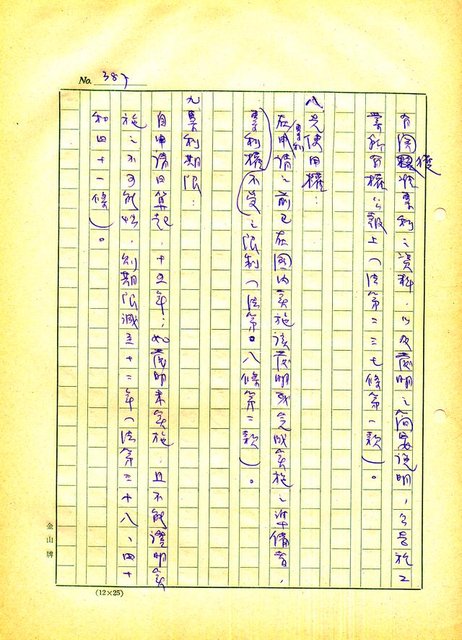 No. 387
有國獲准專利之資料,以及發明之簡要說明,公告於工
業所有權公報上(法第二三七條第一款)。
八、先使用權:
在專利申請之前已在國內實施該發明或完成實施之準備者,
專利權不受之限制(法第〇八條第二款)。
九專利期限:
自申請日算起,十五年;如發明未實施,且不能證明實
施之不可能性,則期限減至十二年(法第三十八、四十
和四十一條)。
金山牌
(12×25)